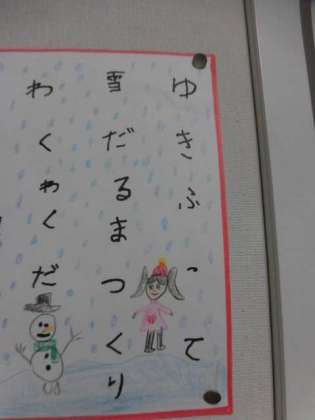 ゆきふって
雪だるまつくり
わくわくだ